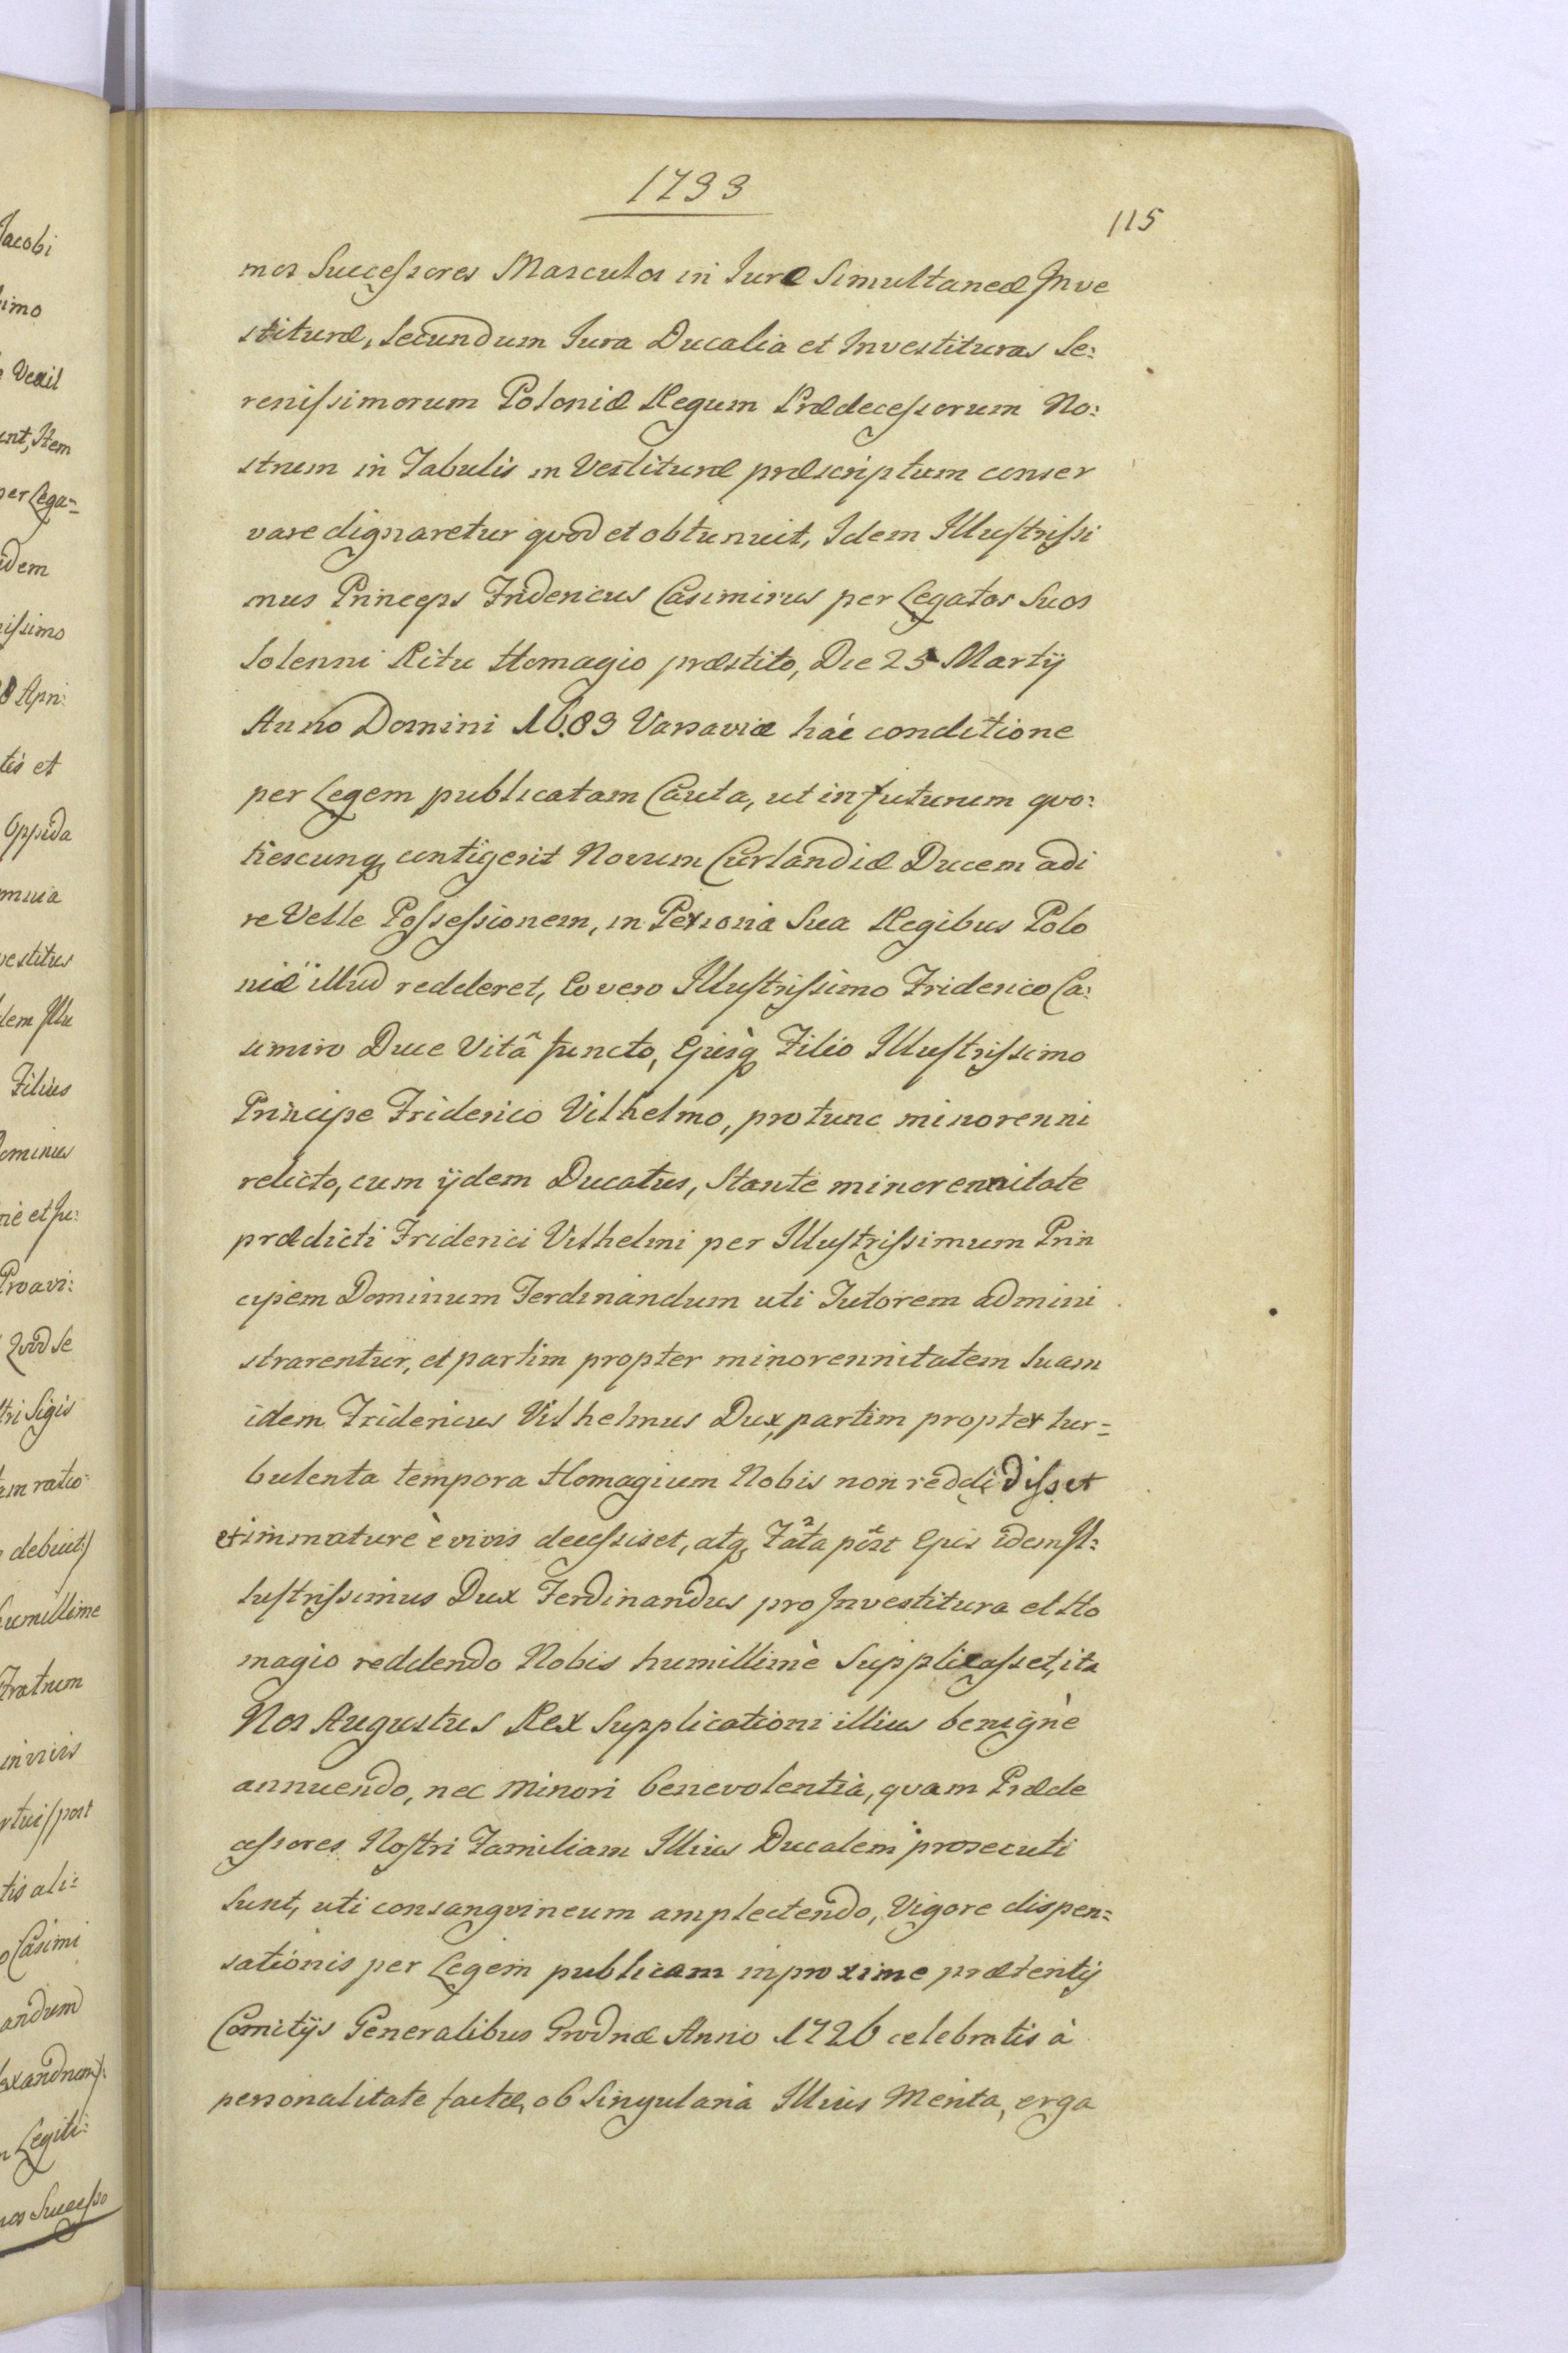 Jacobi
simo
Vexil
unt, Item
per Lega=
idem
nissimo
8 Apri:
tis et
Oppida
omnia
vestitus
dem Illu
Filius
Dominus
nè et Ju:
Proavi:
Quod Se
stri Sigis
tem ratio=
debuit)
humillime
Fratrum
in vivis
rtui post
tis ali=
o Casimi
andum
Legiti=
nos Successo
1733
115
mos Successores Masculos in Juræ Simultaneæ Inve
stituræ, Secundum Jura Ducalia et Investituras Se:
renissimorum Poloniæ Regum Prædecessorum No:
strum in Tabulis in Vestituræ præscriptum conser
vare dignaretur quod et obtunuit, Idem Illustrissi
mus Princeps Fridericus Casimirus per Legatos Suos
Solenni Ritu Homagio præstito, Die 25 Martij
Anno Domini 1689 Varsaviæ hác conditione
per Legem publicatam Cauta, ut in futurum quo:
tiescunq contigerit Novum Curlandiæ Ducem adi
re Velle Possessionem, in Persona Sua Regibus Polo
niæ illud redderet, Eo vero Illustrissimo Friderico Ca:
simiro Duce Vitâ functo, Ejusq Filio Illustrissimo
Principe Friderico Vilhelmo, pro tunc minorenni
relicto, cum ijdem Ducatus, Stante minorennitate
prædicti Friderici Vilhelmi per Illustrissimum Prin
cipem Dominum Ferdinandum uti Tutorem admini
strarentur, et partim propter minorennitatem Suam
idem Fridericus Vilhelmus Dux, partim propter tur=
bulenta tempora Homagium Nobis non reddidisset
et immature è vivis decessiset, atq Fata post Ejus idem Il:
lustrissimus Dux Ferdinandus pro Investitura et Ho
magio reddendo Nobis humillimè Supplicasset, ita
Nos Augustus Rex Supplicationi illius benignè
annuendo, nec minori benevolentià, quam Præde
cessores Nostri Familiam Illius Ducalem prosecuti
Sunt, uti consangvineum amplectendo, Vigore dispen=
sationis per Legem publicam in proxime præteritis
Comitijs Generalibus Grodnæ Anno 1726 celebratis à
personalitate factæ, ob Singularia Illius Merita, erga